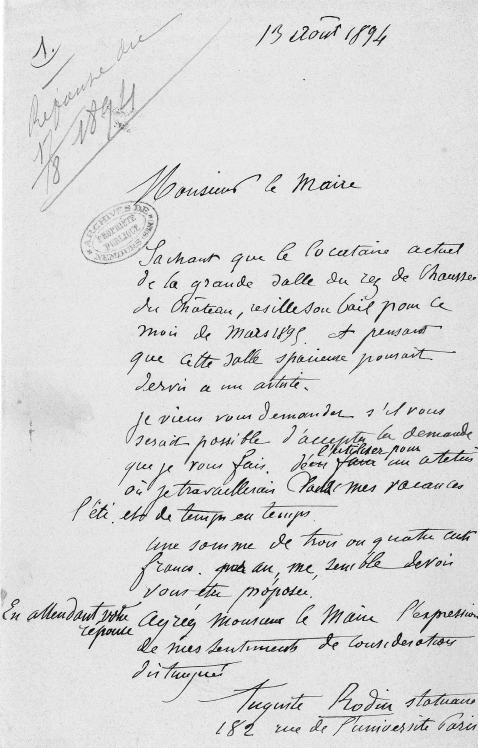 1.
Réponse du
17/8 1894
13 Août 1894
Monsieur le Maire
ARCHIVES DE NEMOURS
PROPRIÉTÉ PUBLIQUE
Sachant que le locataire actuel
de la grande salle du rez de Chaussée
du Château, resille son bail pour ce
mois de Mars 1895 et pensant
que cette salle spacieuse pourrait
servir a un artiste.
Je viens vous demander s'il vous
serait possible d'accepter la demande
que je vous fais. d'en faire l'utiliser pour un atelier
où je travaillerais mes vacances
l'été et de temps en temps
une somme de trois ou quatre cents
francs par an, me semble devoir
vous être proposée.
En attendant votre réponse
Agréez monsieur le Maire l'expression
de mes sentiments de considération
distingués
Auguste Rodin statuaire
182 rue de l'université Paris